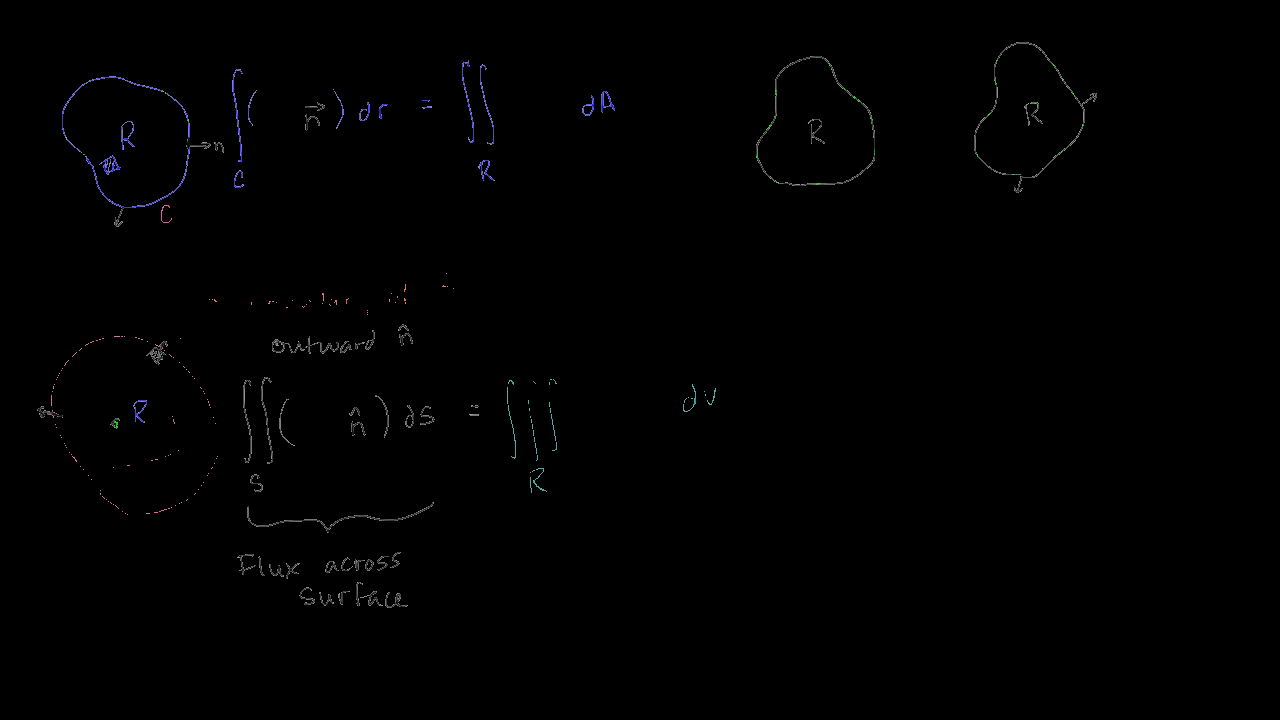 R n C ∫_C ( n⃗ ) dr = ∬_R dA R R
outward n̂
R ∬_S ( n̂ ) dS = ∭_R dV
Flux across
surface